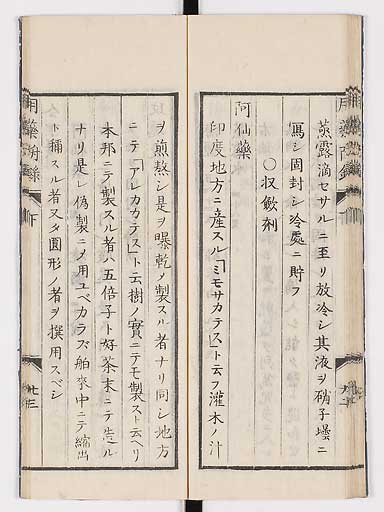 蒸露滴セサルニ至リ放冷シ其液ヲ硝子壜ニ
寫シ固封シ冷處ニ貯フ
〇収斂剤
阿仙藥
印度地方ニ産スル「ミモサカテスト云フ灌木ノ汁
ヲ煎熬シ是ヲ曝乾メ製スル者ナリ同シ地方
ニテ「アレカカテスト云樹ノ實ニテモ製スト云ヘリ
本邦ニテ製スル者ハ五倍子ト好茶末ニテ造ル
ナリ是レ偽製ニメ用ユベカラズ舶來中ニテ縮出
ト稱スル者又タ圓形ノ者ヲ撰用スベシ
用藥附録 下